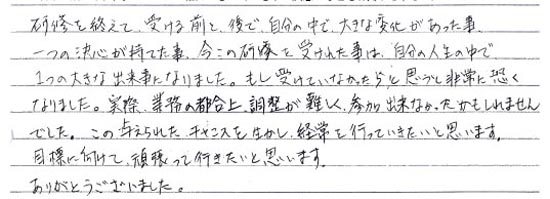 研修を終えて、受ける前と、後で、自分の中で、大きな変化があった事、
一つの決心が持てた事、今この研修を受けれた事は、自分の人生の中で
1つの大きな出来事になりました。もし受けていなかったら、と思うと非常に恐く
なりました。実際、業務の都合上、調整が難しく、参加出来なかったかもしれません
でした。この与えられたチャンスを生かし、経営を行っていきたいと思います。
目標に向けて、頑張って行きたいと思います。
ありがとうございました。